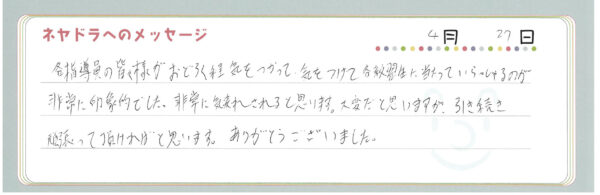 ネヤドラへのメッセージ
4月 27日
各指導員の皆様がおどろく程気をつかって、気をつけて合教習生に当たっていらっしゃるのが
非常に印象的でした。非常に気疲れされると思います。大変だと思いますが、引き続き
頑張って頂ければと思います。ありがとうございました。